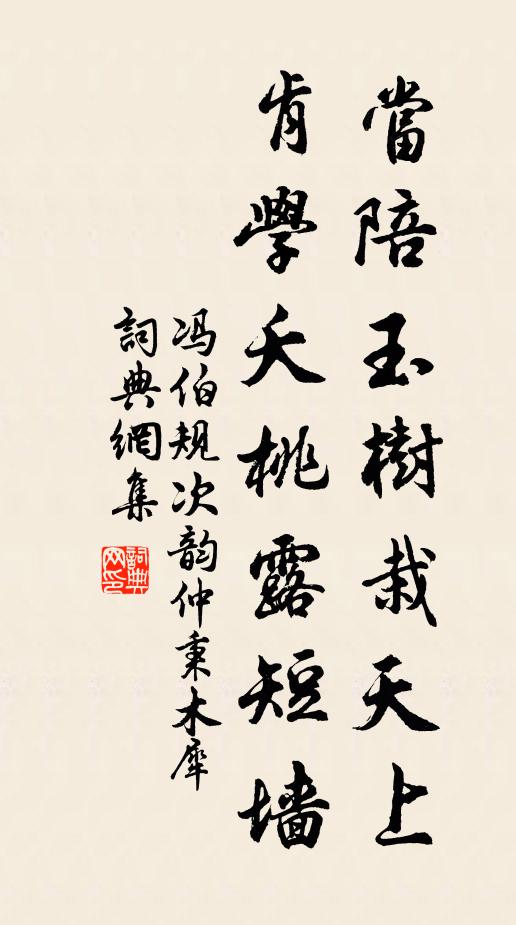 當陪玉樹栽天上
肯學夭桃露短墙
冯伯規次韵仲秉木犀
詞典網集
詞典网印